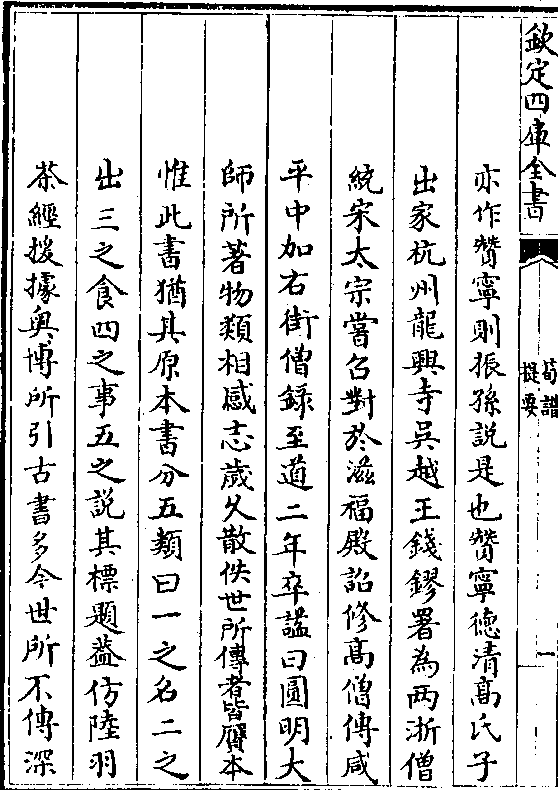 欽定四庫全書
筍譜
提要
一
亦作贊寧則振孫説是也贊寧徳清髙氏子
出家杭州龍興寺吳越王錢鏐署為两浙僧
統宋太宗嘗召對於滋福殿詔修髙僧傳咸
平中加右街僧錄至道二年卒諡曰圓明大
師所著物類相感志歲久散佚世所傳者皆贗本
惟此書猶其原本書分五類曰一之名二之
出三之食四之事五之説其標題葢仿陸羽
茶經援據奥博所引古書多今世所不傳深